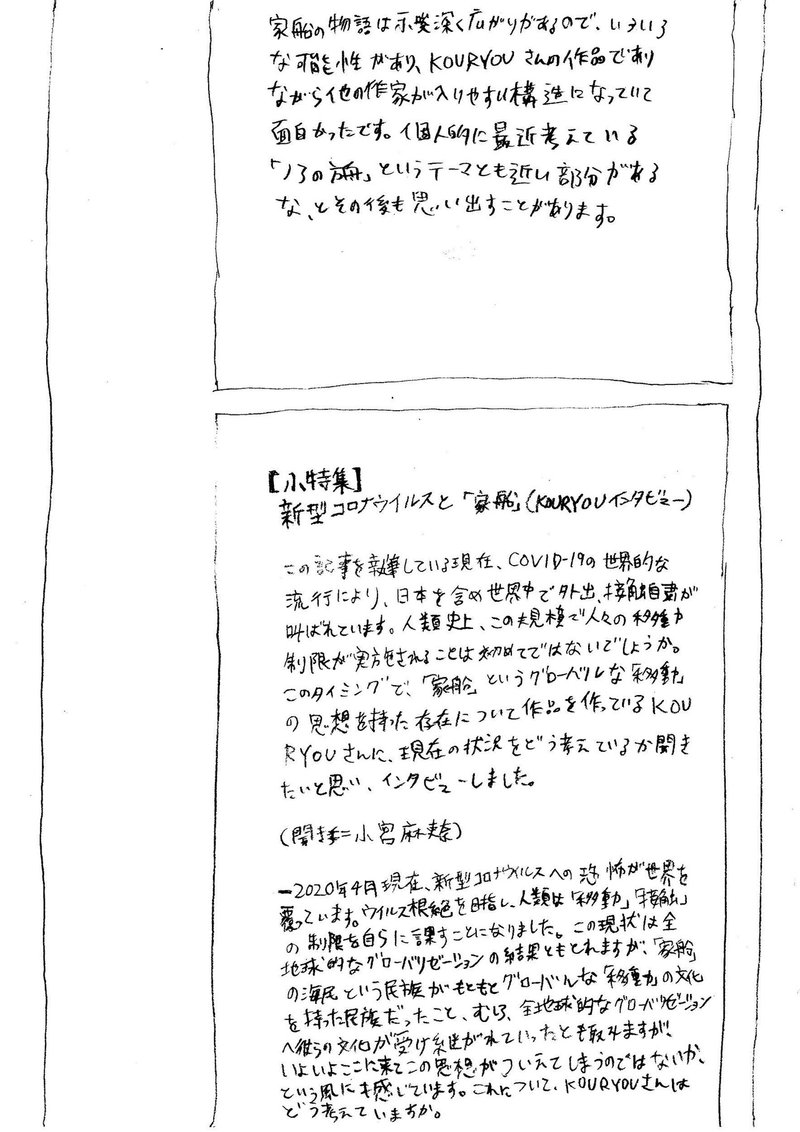 家船の物語は示唆深く広がりがあるので、いろいろ
な可能性があり、KOURYOUさんの作品であり
ながら他の作家が入りやすい構造になっていて
面白かったです。個人的に最近考えている
「ノアの方舟」というテーマとも近い部分がある
な、とその後も思い出すことがあります。
【小特集】
新型コロナウイルスと「家船」(KOURYOUインタビュー)
この記事を執筆している現在、COVID-19の世界的な
流行により、日本を含め世界中で外出、接触自粛が
叫ばれています。人類史上、この規模で人々の移動
制限が実施されることは初めてではないでしょうか。
このタイミングで、「家船」というグローバルな「移動」
の思想を持った存在について作品を作っているKOU
RYOUさんに、現在の状況をどう考えているか聞き
たいと思い、インタビューしました。
(聞き手=小宮麻吏奈)
ー2020年4月現在、新型コロナウイルスへの恐怖が世界を
覆っています。ウイルス根絶を目指し、人類は「移動」「接触」
の制限を自らに課すことになりました。この現状は全
地球的なグローバリゼーションの結果ともとれますが、「家船」
の海民という民族がもともとグローバルな「移動」の文化
を持った民族だったこと、むしろ、全地球的なグローバリゼーション
へ彼らの文化が受け継がれていったとも取れますが、
いよいよここに来てこの思想がついえてしまうのではないか、
という風にも感じています。これについて、KOURYOUさんは
どう考えていますか。